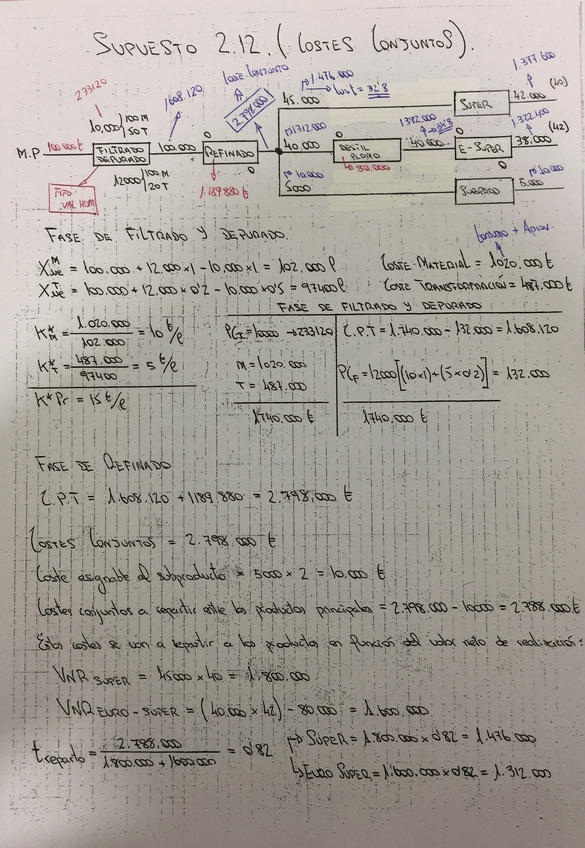 SUPUESTO 2.12. (COSTES CONJUNTOS).
273120
1608.120
COSTE CONJUNTO
2.798.000
1.476.000
Unit = 32'8
1.377.600
10,000/100M
50T
45.000
SUPER
42.000
(40)
M.P
100.000 t
FILTRADO DEPURADO
100.000
REFINADO
0
0
1312.000
40.000
DESTIL PLOMO
80.000
1392.000
40.000
0
E-SUPER
0
1.322.400
38.000
(42)
12000/100M
20T
1.189.880 t
10.000
5000
SUBPROD
10.000
5.000
FIFO
VAL HOM
FASE DE FILTRADO Y DEPURADO.
Consumo + Aprov.
X M = 100.000 + 12.000 x 1 - 10.000 x 1 = 102.000 l
COSTE MATERIAL = 1.020.000 t
X T = 100.000 + 12.000 x 0'2 - 10.000 x 0'5 = 97400 l
COSTE TRANSFORMACIÓN = 487.000 t
FASE DE FILTRADO Y DEPURADO
K*M = 1.020.000 / 102.000 = 10 t/l
PCI = 10000 → 273120
C.P.T = 1.740.000 - 132.000 = 1.608.120
K*T = 487.000 / 97400 = 5 t/l
M = 1020.000
T = 487.000
PCF = 12000 [(10x1) + (5 x 0'2)] = 132.000
K*Pr = 15 t/l
1740.000 t
1740.000 t
FASE DE REFINADO
C.P.T = 1.608.120 + 1189.880 = 2.798.000 t
COSTES CONJUNTOS = 2.798.000 t
Coste asignable al subproducto = 5000 x 2 = 10.000 t
Costes conjuntos a repartir entre los productos principales = 2.798.000 - 10000 = 2.788.000 t
Estos costes se van a repartir a los productos en función del valor neto de realización:
VNR SUPER = 45000 x 40 = 1.800.000
VNR EURO-SUPER = (40.000 x 42) - 80.000 = 1.600.000
t reparto = 2.788.000 / 1800.000 + 1600000 = 0'82
→ SÚPER = 1.800.000 x 0'82 = 1.476.000
↳ EURO SÚPER = 1.600.000 x 0'82 = 1.312.000